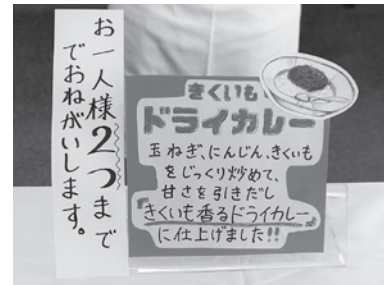 お一人様2つまで
でおねがいします。
きくいも
ドライカレー
玉ねぎ、にんじん、きくいも
をじっくり炒めて、
甘さを引きだし
『きくいも香るドライカレー』
に仕上げました!!